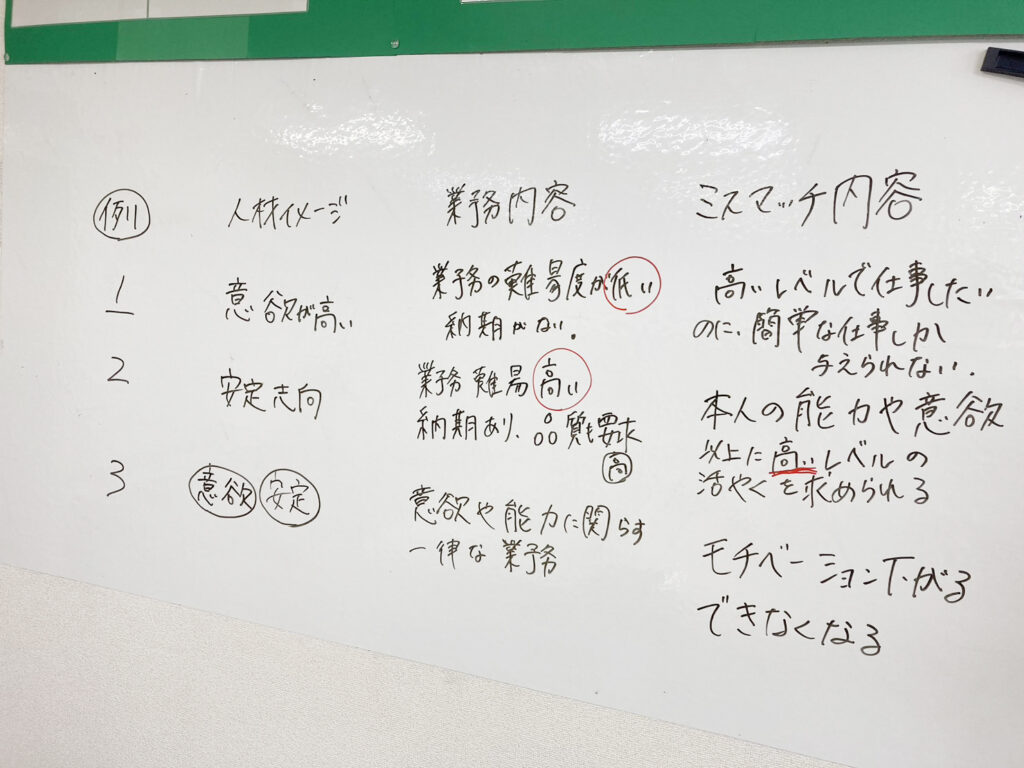 例 人材イメージ 業務内容 ミスマッチ内容
1 意欲が高い 業務の難易度が低い 高いレベルで仕事したい
納期がない。 のに、簡単な仕事しか
与えられない.
2 安定志向 業務難易高い 本人の能力や意欲
納期あり、品質も要求 以上に高いレベルの
高 活やくを求められる
3 意欲 安定 意欲や能力に関らず モチベーション下がる
一律な業務 できなくなる